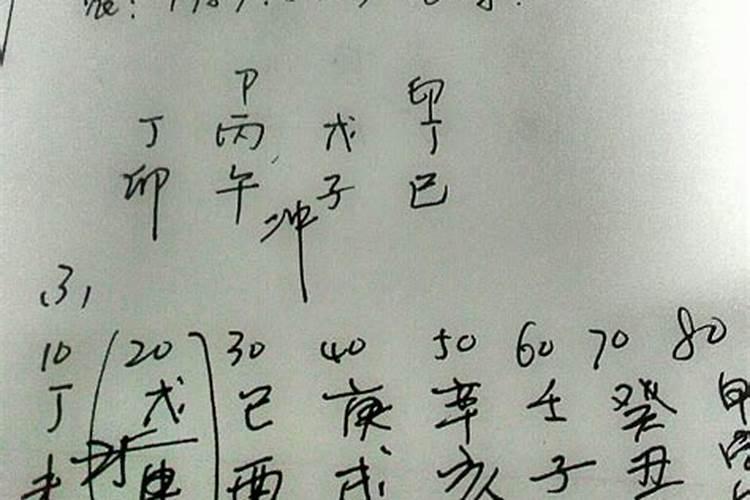 P 印
丁 丙 戊 丁
卯 午 子 巳
冲
(3)
10 20 30 40 50 60 70 80
丁 戊 己 庚 辛 壬 癸 甲
未 申 酉 戌 亥 子 丑